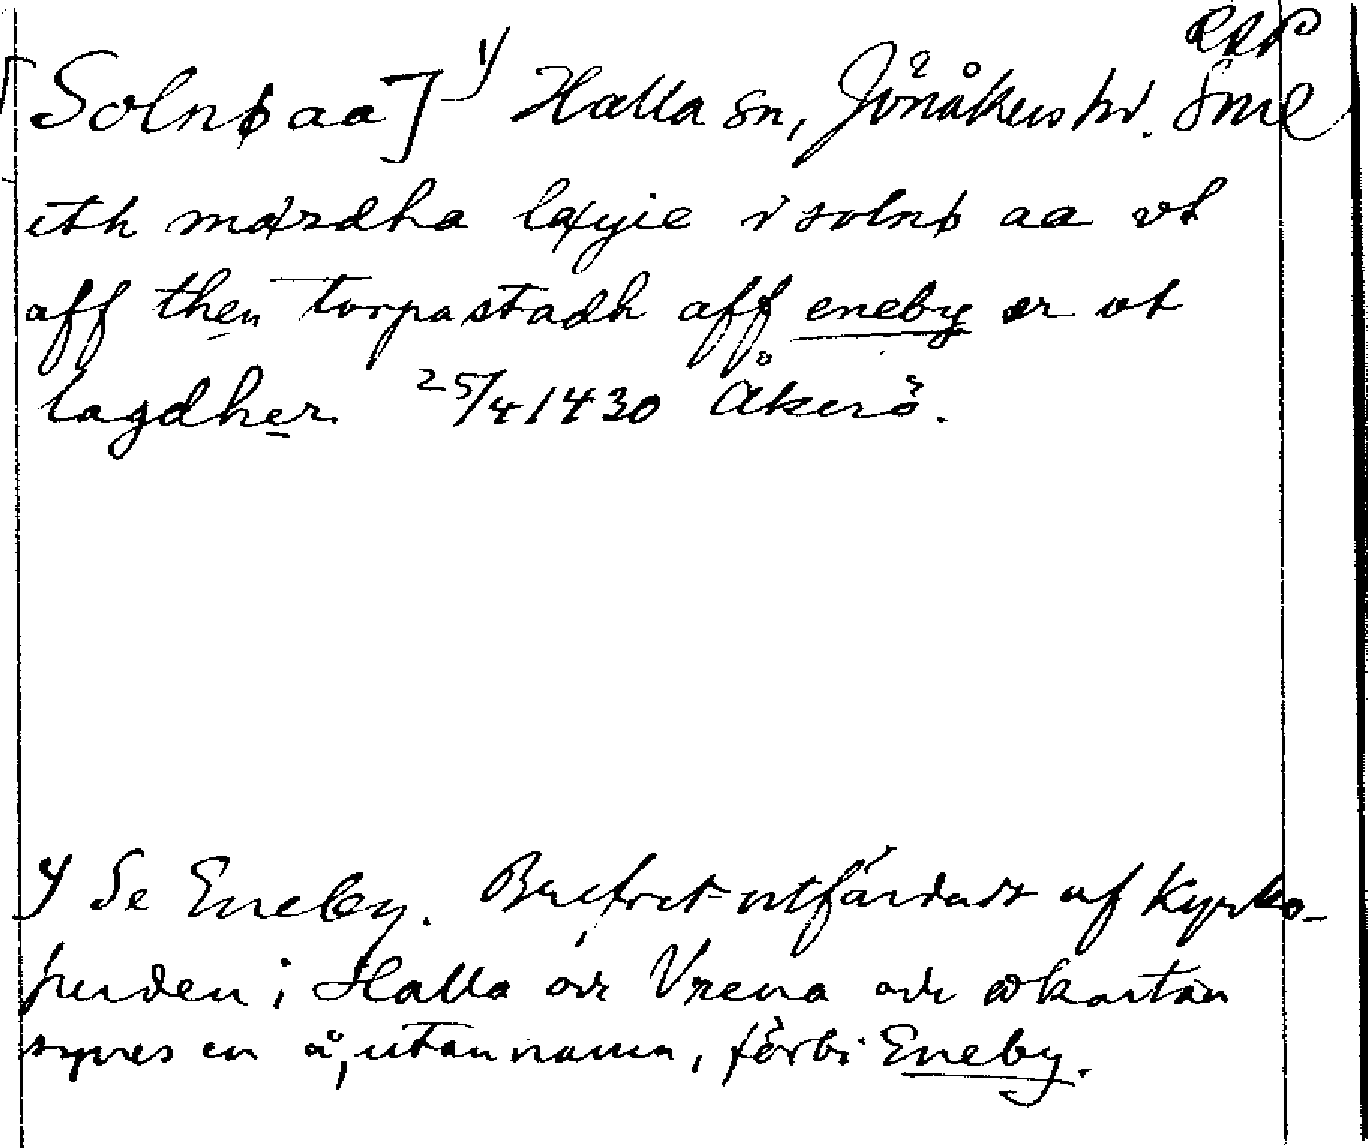 [Solnø aa] 1) Halla sn, Jönåkers hd. Sml
eth mardha læyie i solnø aa vt
aff then torpastadh aff eneby er vt
lagdher 25/4 1430 Åkerö.
1) Se Eneby. Brefvet utfärdadt af kyrko-
herden i Halla och Vrena och å kartan
synes en å, utan namn, förbi Eneby.